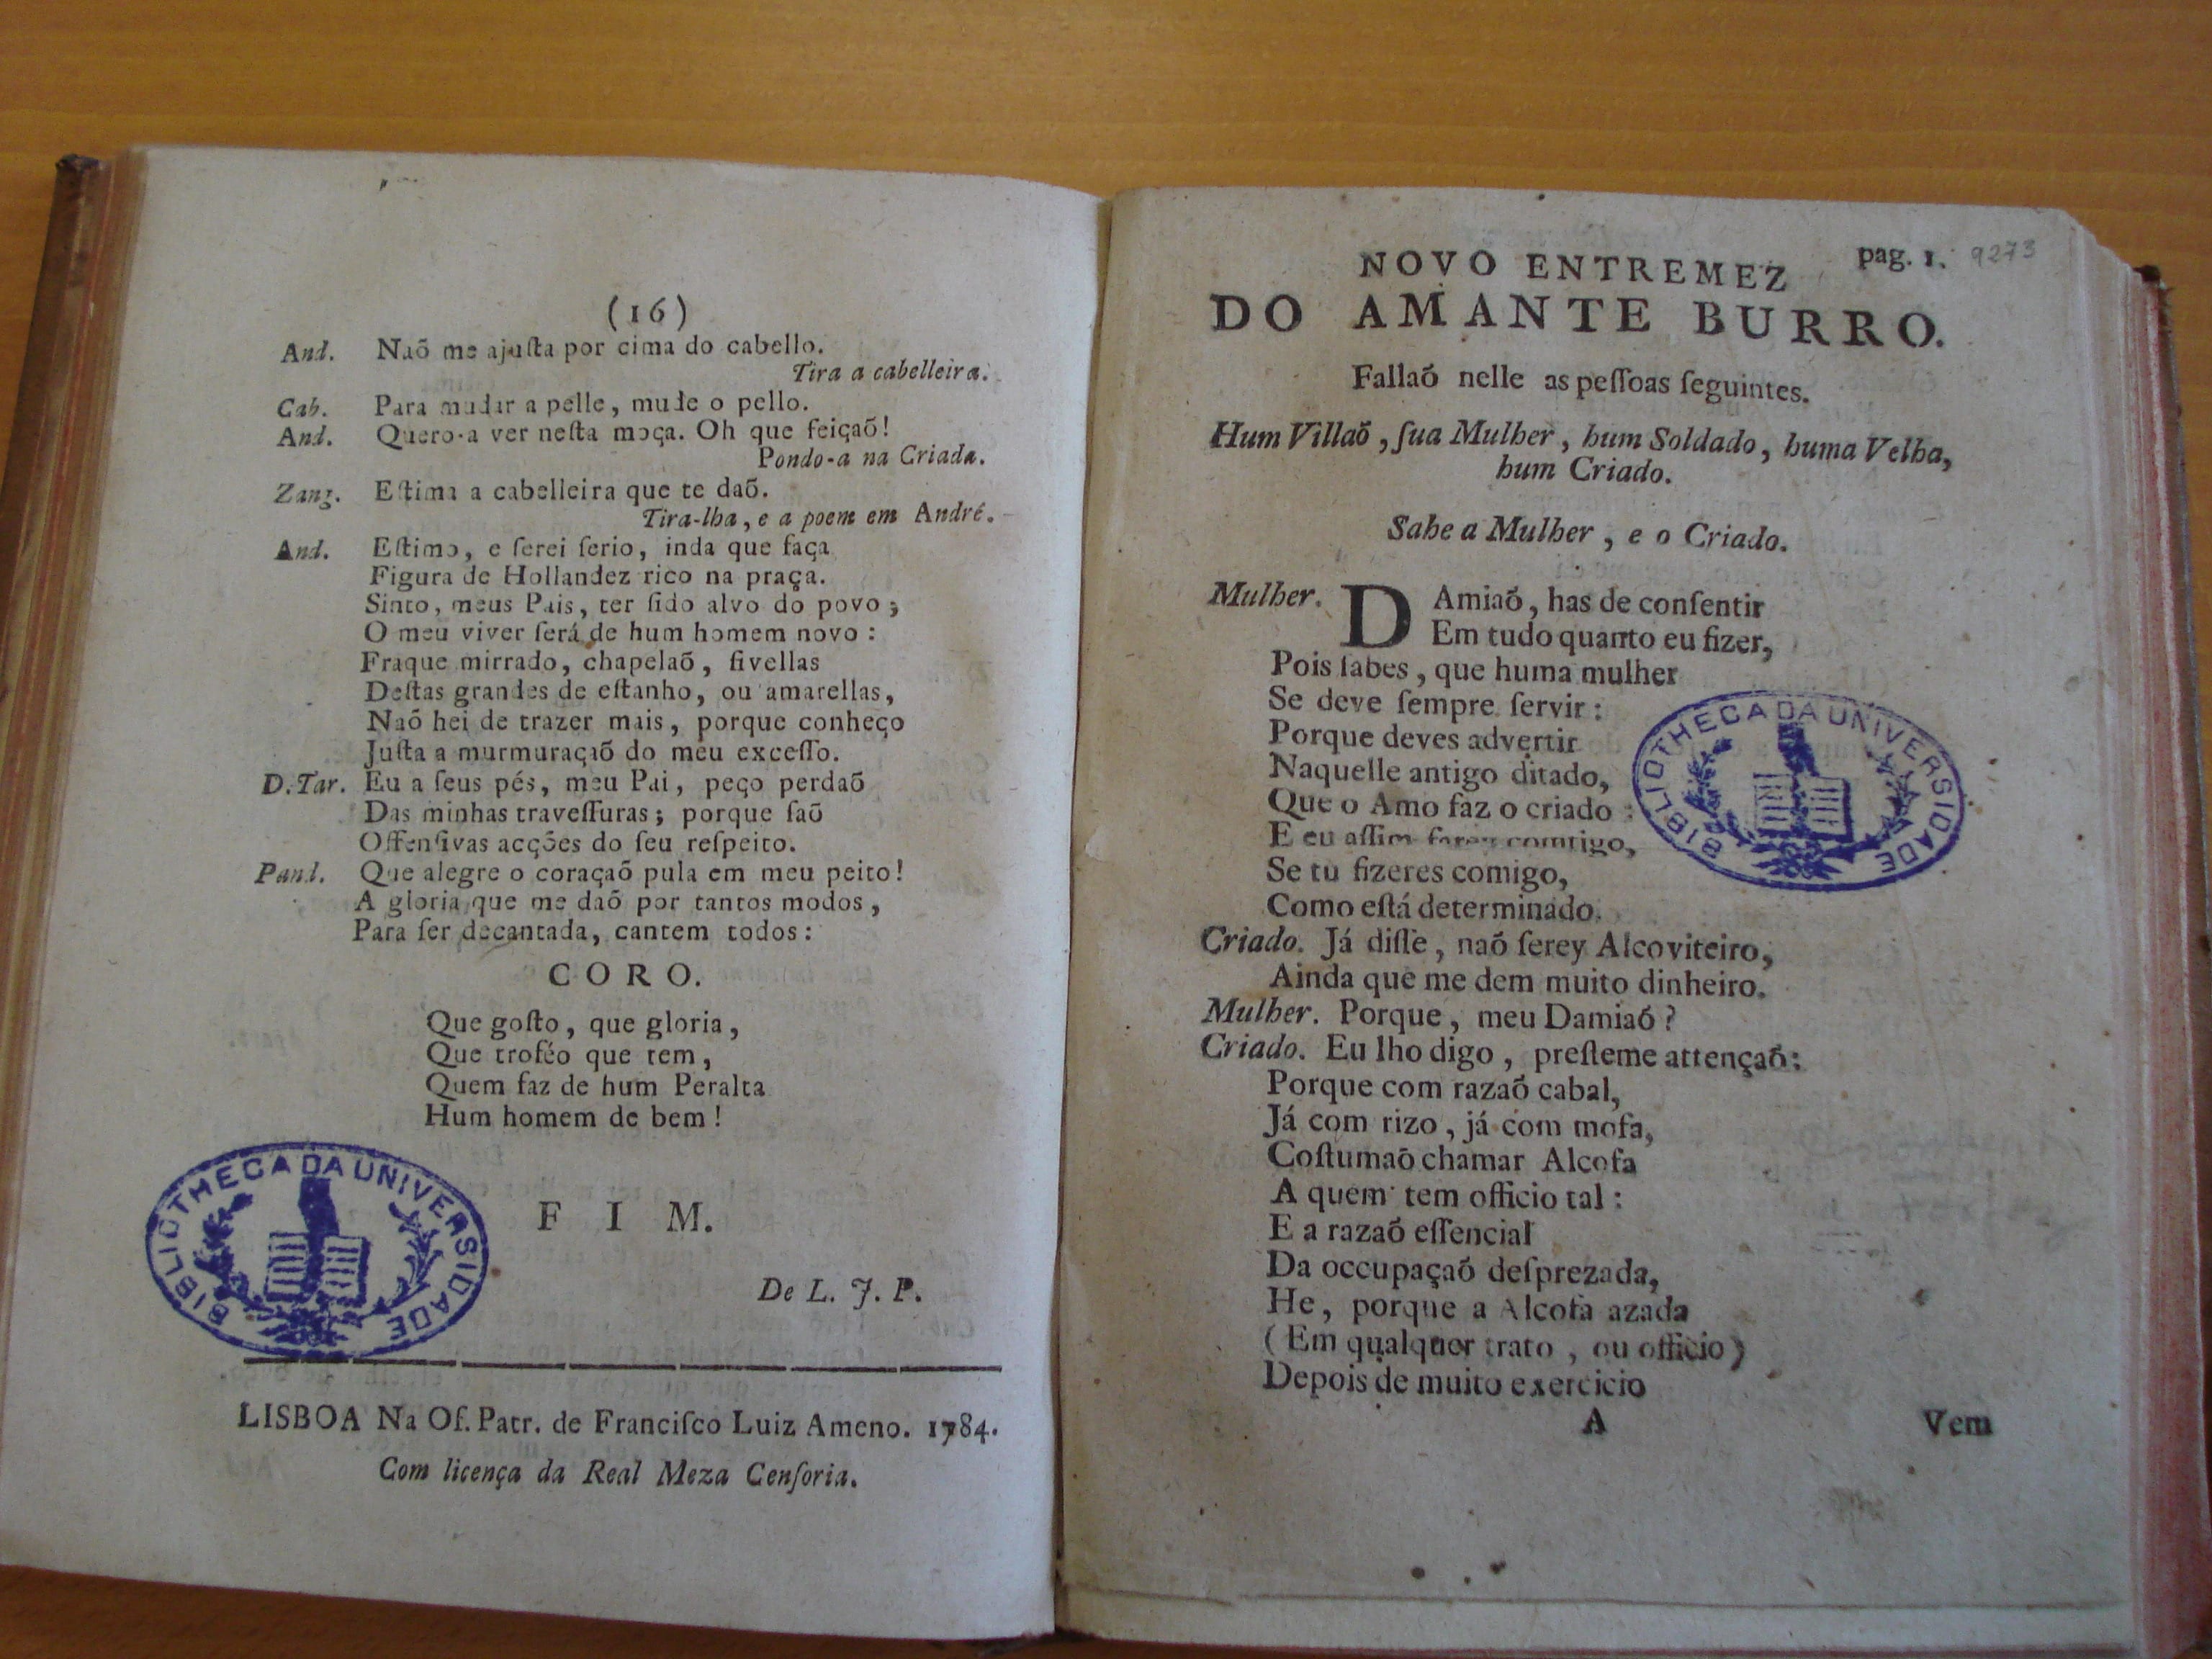 (16)
And. Naõ me ajuſta por cima do cabello.
Tira a cabelleira.
Cab. Para mudar a pelle, mude o pello.
And. Quero-a ver neſta moça. Oh que feiçaõ!
Pondo-a na Criada.
Zang. Eſtima a cabelleira que te daõ.
Tira-lha, e a poem em André.
And. Eſtimo, e ſerei ſerio, inda que faça
Figura de Hollandez rico na praça.
Sinto, meus Pais, ter ſido alvo do povo;
O meu viver ſerá de hum homem novo:
Fraque mirrado, chapelaõ, fivellas
Deſtas grandes de eſtanho, ou amarellas,
Naõ hei de trazer mais, porque conheço
Juſta a murmuraçaõ do meu exceſſo.
D. Tar. Eu a ſeus pés, meu Pai, peço perdaõ
Das minhas traveſſuras; porque ſaõ
Offenſivas acções do ſeu reſpeito.
Pand. Que alegre o coraçaõ pula em meu peito!
A gloria que me daõ por tantos modos,
Para ſer decantada, cantem todos:
CORO.
Que goſto, que gloria,
Que troféo que tem,
Quem faz de hum Peralta
Hum homem de bem!
FIM.
BIBLIOTHECA DA UNIVERSIDADE
De L. J. P.
LISBOA Na Of. Patr. de Franciſco Luiz Ameno. 1784.
Com licença da Real Meza Cenſoria.
pag. 1. 9273
NOVO ENTREMEZ
DO AMANTE BURRO.
Fallaõ nelle as peſſoas ſeguintes.
Hum Villaõ, ſua Mulher, hum Soldado, huma Velha,
hum Criado.
Sahe a Mulher, e o Criado.
Mulher. DAmiaõ, has de conſentir
Em tudo quanto eu fizer,
Pois ſabes, que huma mulher
Se deve ſempre ſervir:
Porque deves advertir
Naquelle antigo ditado,
Que o Amo faz o criado:
E eu aſſim farey comtigo,
Se tu fizeres comigo,
Como eſtá determinado.
BIBLIOTHECA DA UNIVERSIDADE
Criado. Já diſſe, naõ ſerey Alcoviteiro,
Ainda que me dem muito dinheiro.
Mulher. Porque, meu Damiaõ?
Criado. Eu lho digo, preſteme attençaõ:
Porque com razaõ cabal,
Já com rizo, já com mofa,
Coſtumaõ chamar Alcofa
A quem tem officio tal:
E a razaõ eſſencial
Da occupaçaõ deſprezada,
He, porque a Alcofa azada
(Em qualquer trato, ou officio)
Depois de muito exercicio
A Vem